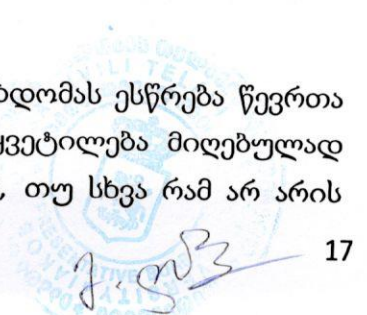 ბდომას ესწრება წევრთა
ყვეტილება მიღებულად
, თუ სხვა რამ არ არის
17